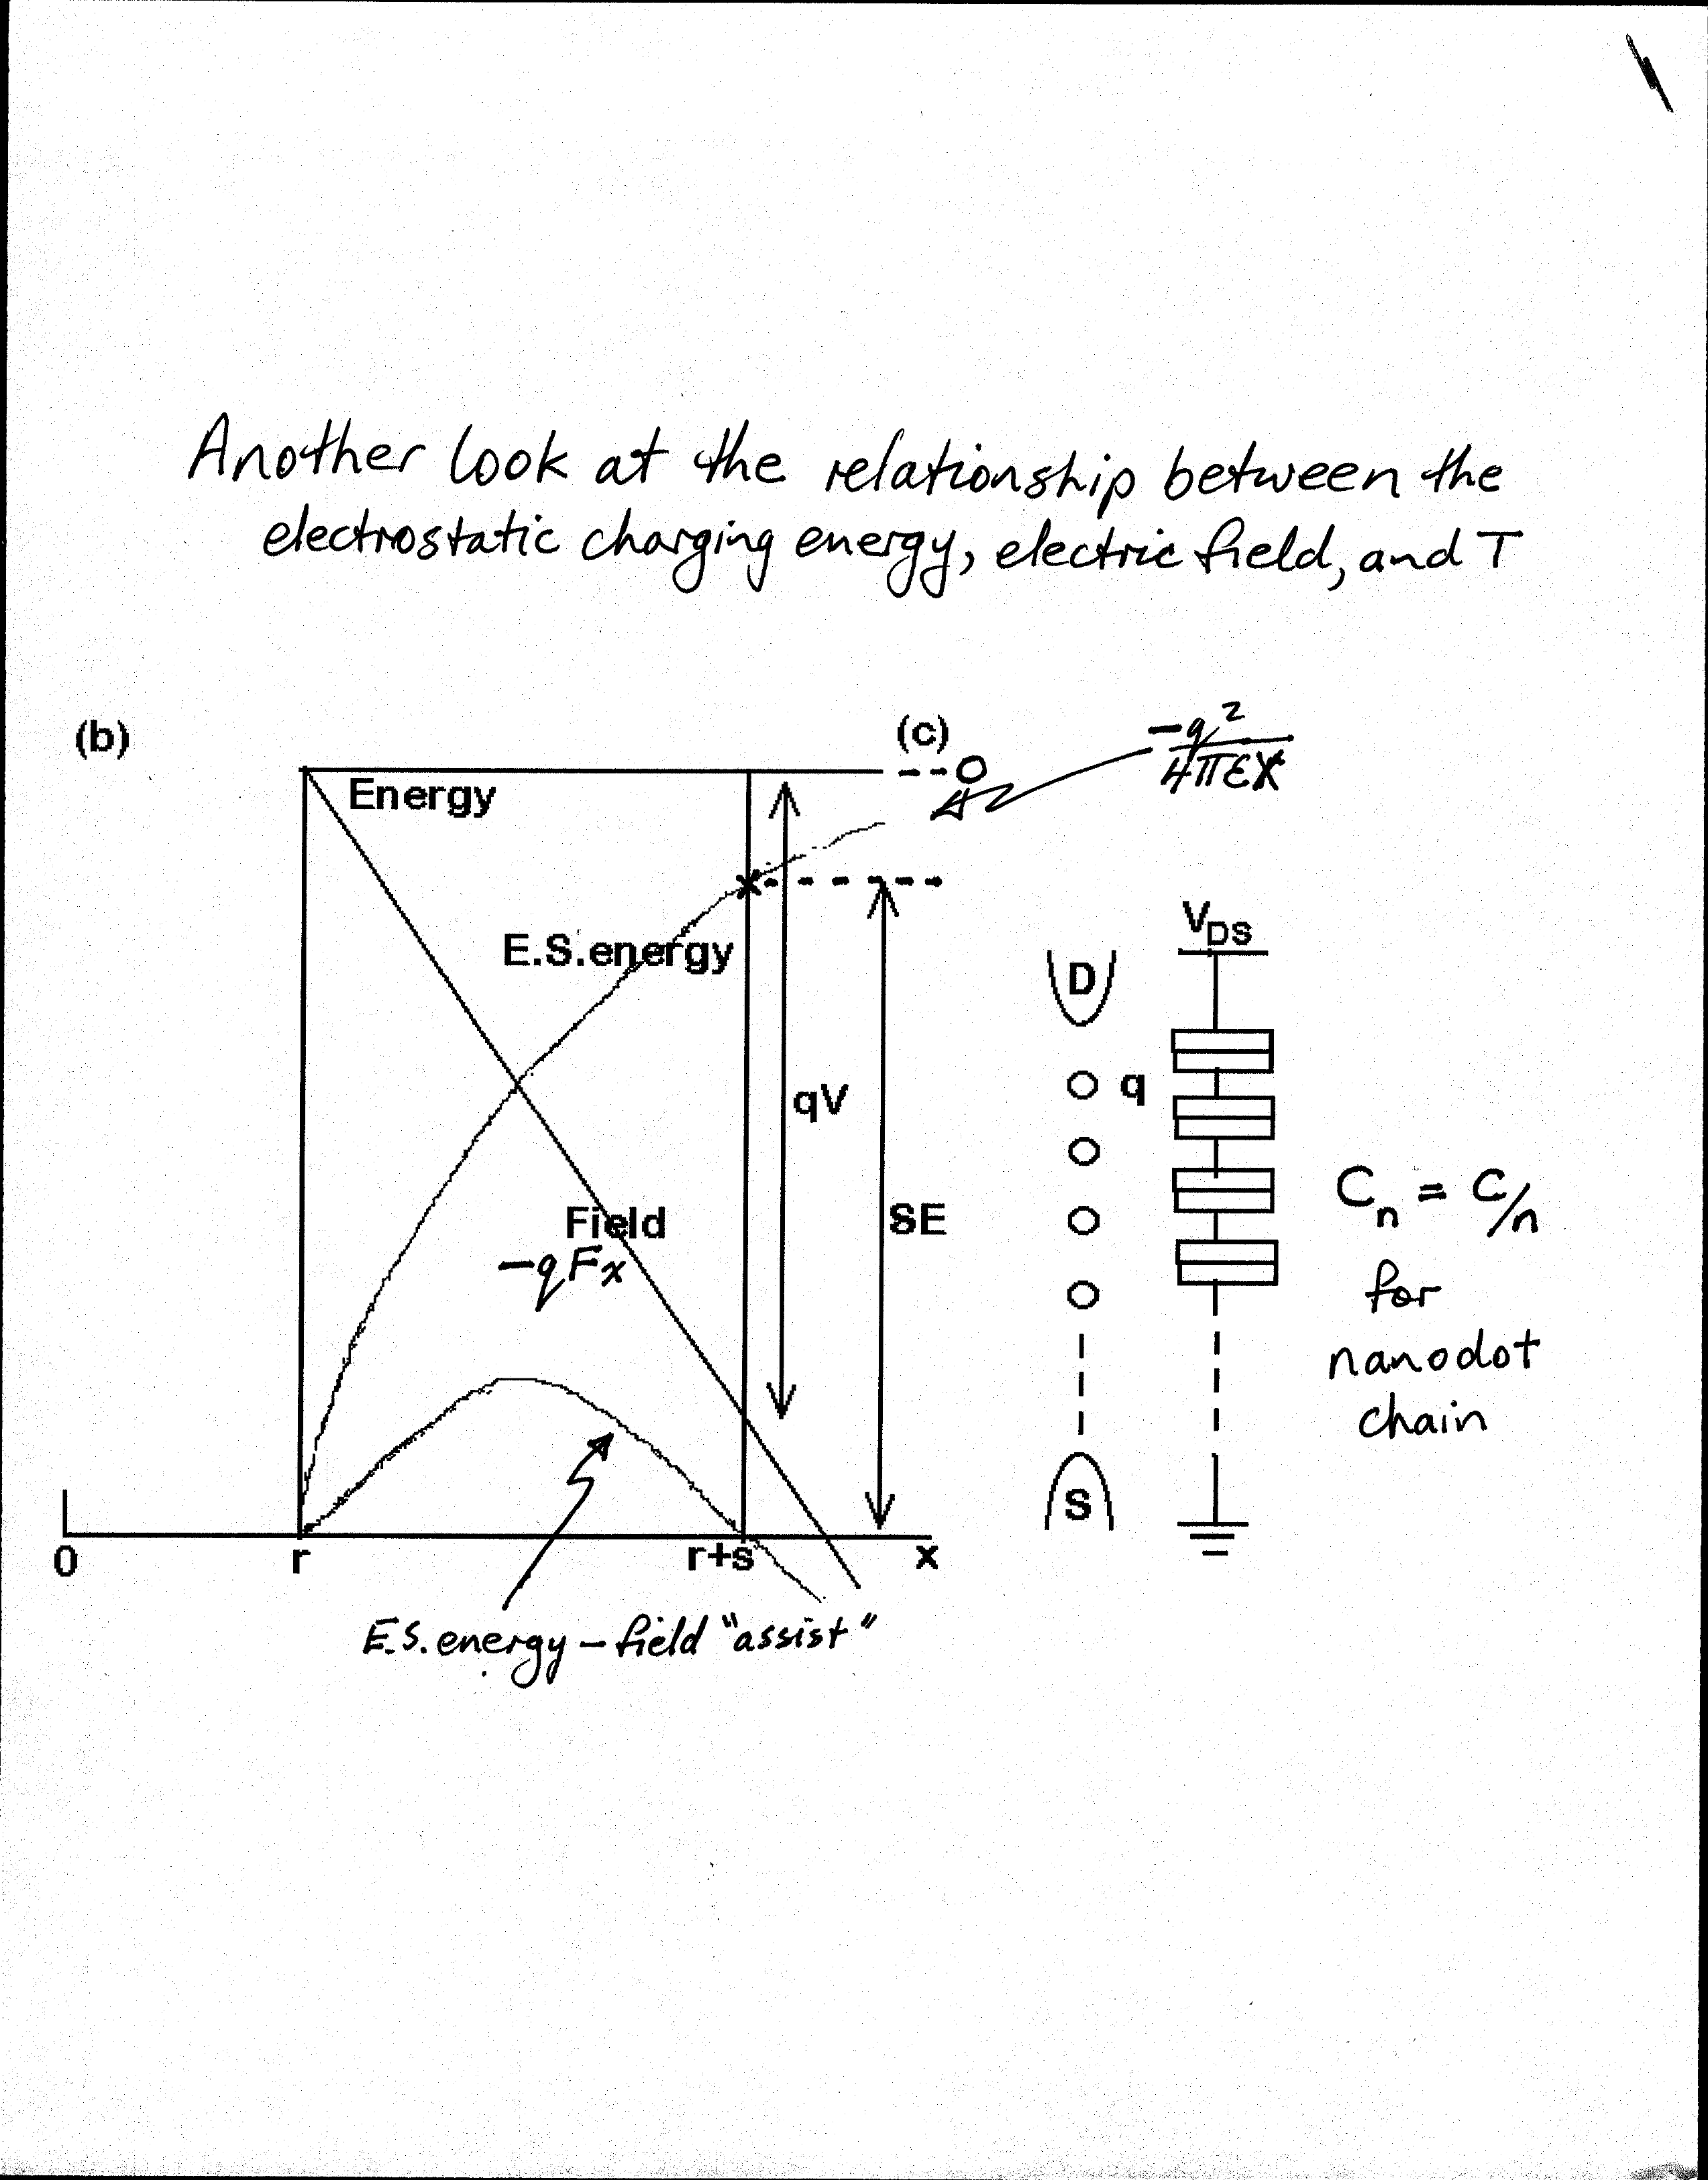 Another look at the relationship between the
electrostatic charging energy, electric field, and T
(b)
(c)
-q²
4πεx
Energy
E.S.energy
V_DS
D
qV
q
Field
-qFx
SE
C_n = C/n
for
nanodot
chain
S
0
r
r+s
x
E.S. energy – field "assist"